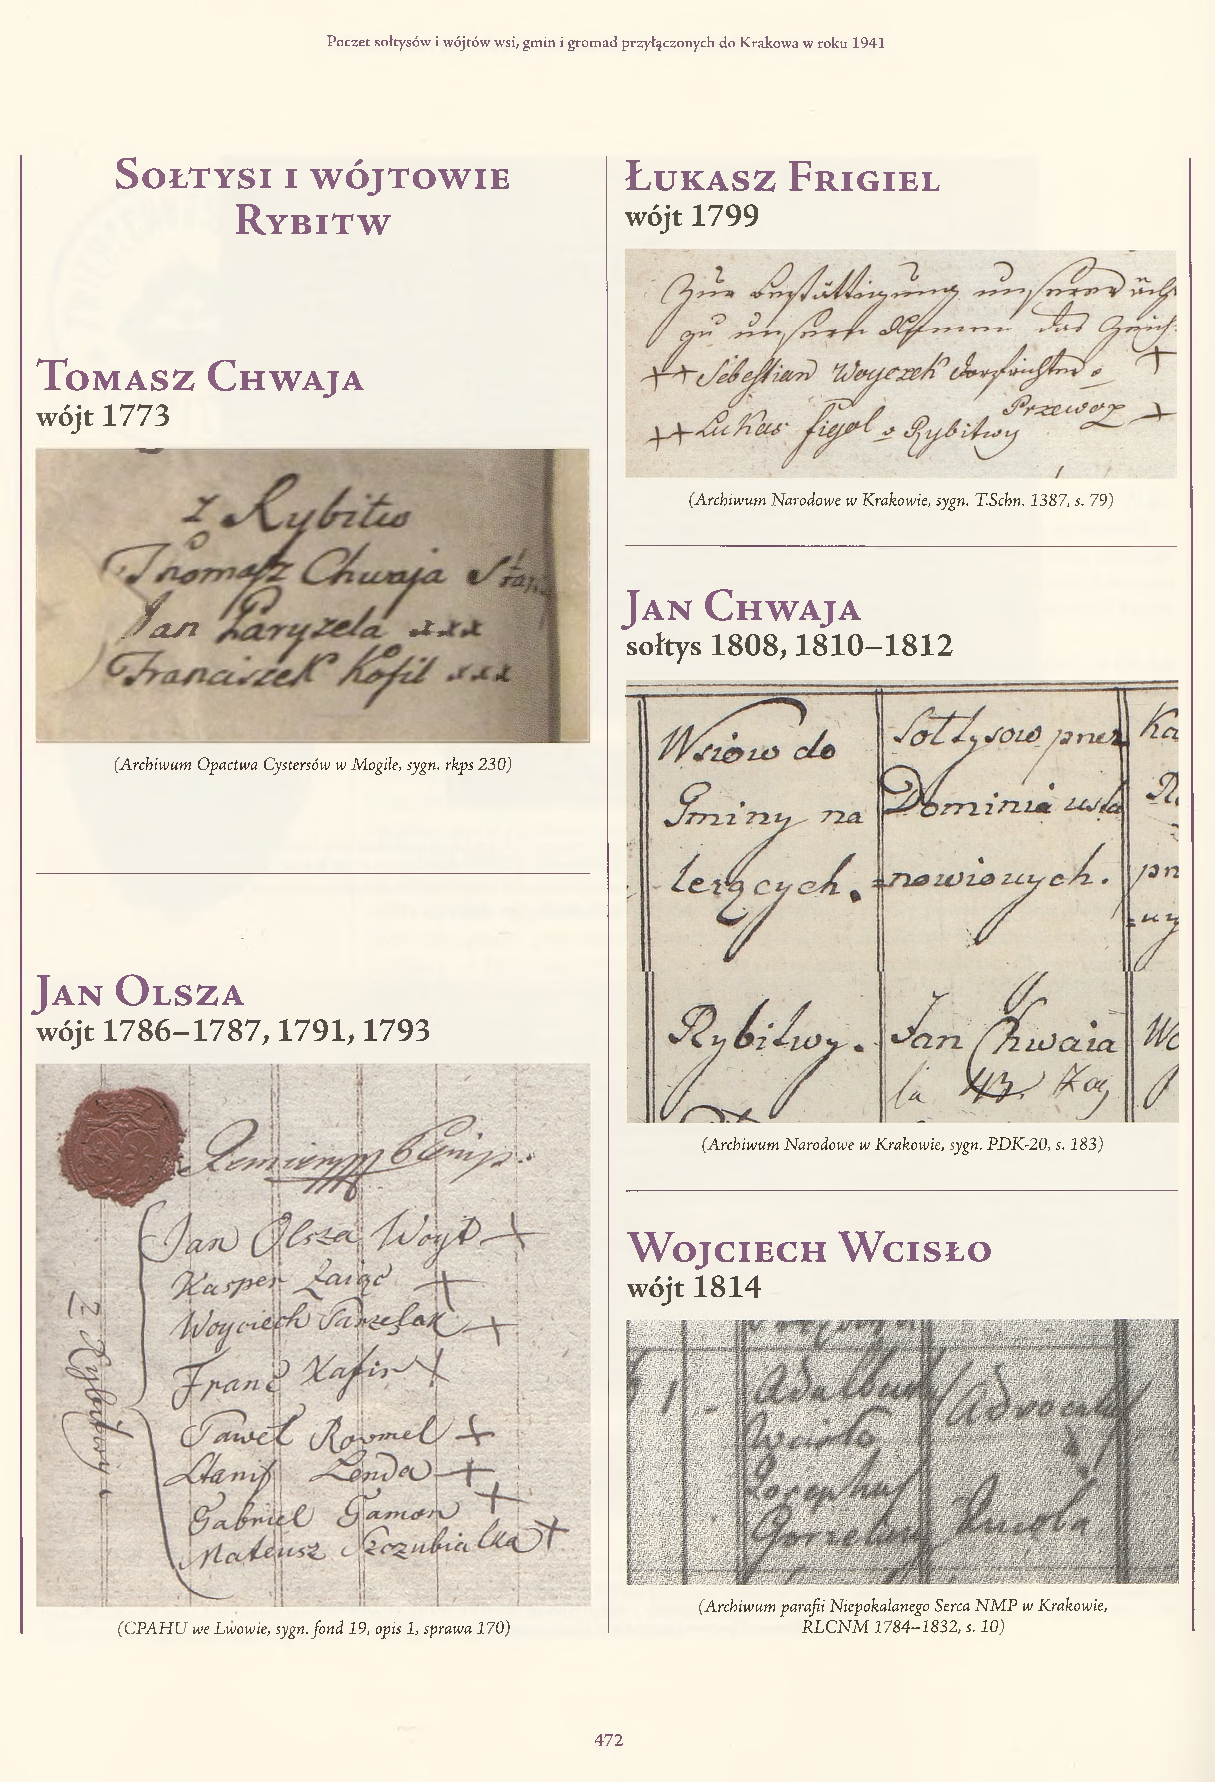 Poczet sołtysów i wójtów wsi, gmin i gromad przyłączonych do Krakowa w roku 1941
Sołtysi i wójtowie
Rybitw
Tomasz Chwaja
wójt 1773
z Rybitw
Thomasz Chwaja
Jan Paryzela xxx
Franciszek Kofil xxx
(Archiwum Opactwa Cystersów w Mogile, sygn. rkps 230)
Jan Olsza
wójt 1786–1787, 1791, 1793
Z Rybitwy
Jan Olsza Woyt +
Kasper Zaiąc +
Woyciech +
Franc Kafir +
Paweł Rommel +
Stanis Lenda +
Gabriel Gamon +
Mateusz Szczubialka +
(CPAHU we Lwowie, sygn. fond 19, opis 1, sprawa 170)
Łukasz Frigiel
wójt 1799
Zur Bestättigung unserer
zu unsern Nammen das Zeich
++ Sebestian Woyczek Dorfrichter +
Przewoz
++ Lukas figol Rybitwy +
(Archiwum Narodowe w Krakowie, sygn. T.Schn. 1387, s. 79)
Jan Chwaja
sołtys 1808, 1810–1812
Wsiow do Sołtysow przez Ka
Gminy na Dominia usta
leżących. =nowionych. pn
Rybitwy. Jan Chwaia Wo
(Archiwum Narodowe w Krakowie, sygn. PDK-20, s. 183)
Wojciech Wcisło
wójt 1814
Wcisło
Josephus
(Archiwum parafii Niepokalanego Serca NMP w Krakowie,
RLCNM 1784–1832, s. 10)
472